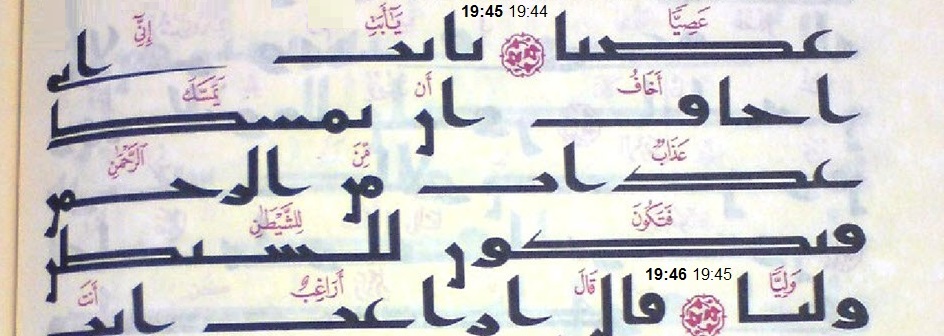 19:45 19:44
عَصِيًّا يَٰٓأَبَتِ إِنِّىٓ
عصيا يابت انى
أَخَافُ أَن يَمَسَّكَ
اخاف ان يمسك
عَذَابٌ مِّنَ ٱلرَّحْمَٰنِ
عذاب من الرحمن
فَتَكُونَ لِلشَّيْطَٰنِ
فتكون للشيطن
19:46 19:45
وَلِيًّا قَالَ أَرَاغِبٌ أَنتَ
وليا قال اراغب انت